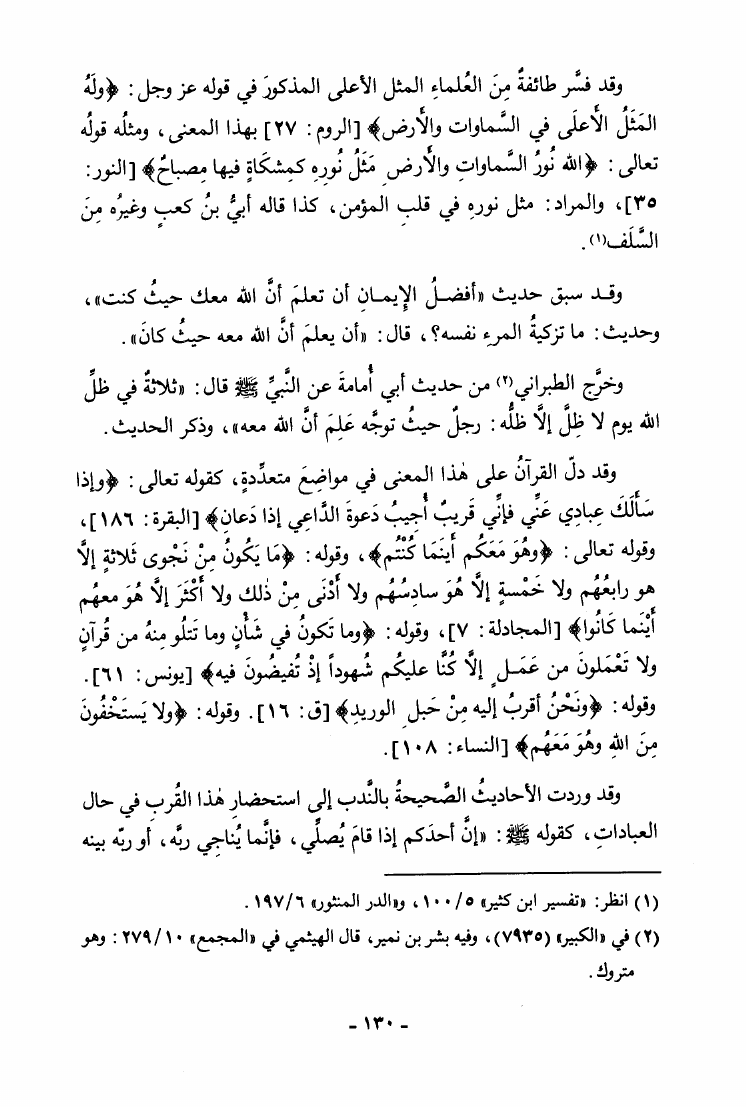 وقد فسَّر طائفةٌ مِنَ العُلماءِ المثل الأعلى المذكورَ في قوله عز وجل: ﴿ولَهُ
المَثَلُ الأعلَى في السَّماوات والأرض﴾ [الروم: ٢٧] بهذا المعنى، ومثلُه قولُه
تعالى: ﴿الله نُورُ السَّماواتِ والأرضِ مَثَلُ نُورِهِ كمِشكَاةٍ فيها مِصباحٌ﴾ [النور:
٣٥]، والمراد: مثل نورهِ في قلبِ المؤمن، كذا قاله أبيُّ بنُ كعبٍ وغيرُه مِنَ
السَّلَف(١).
وقـد سبق حديث «أفضـلُ الإيمـانِ أن تعلمَ أنَّ الله معك حيثُ كنت»،
وحديث: ما تزكيةُ المرءِ نفسه؟، قال: «أن يعلمَ أنَّ الله معه حيثُ كانَ».
وخرَّج الطبراني(٢) من حديث أبي أُمامةَ عن النَّبيِّ ﷺ قال: «ثلاثةٌ في ظلِّ
الله يوم لا ظِلَّ إلَّا ظلُّه: رجلٌ حيثُ توجَّه عَلِمَ أنَّ الله معه»، وذكر الحديث.
وقد دلّ القرآنُ على هٰذا المعنى في مواضِعَ متعدِّدةٍ، كقوله تعالى: ﴿وإذا
سَألَكَ عِبادِي عَنِّي فإنِّي قَريبٌ أُجيبُ دَعوةَ الدَّاعِي إذا دَعانِ﴾ [البقرة: ١٨٦]،
وقوله تعالى: ﴿وهُوَ مَعَكُم أينَمَا كُنْتُم﴾، وقوله: ﴿مَا يَكُونُ مِنْ نَجْوى ثَلاثةٍ إلَّا
هو رابعُهُم ولا خَمْسةٍ إلَّا هُوَ سادِسُهُم ولا أدْنَى مِنْ ذٰلك ولا أكْثَرَ إلَّا هُوَ معهم
أيْنَما كَانُوا﴾ [المجادلة: ٧]، وقوله: ﴿وما تَكونُ في شَأْنٍ وما تَتلُو مِنهُ من قُرآنٍ
ولا تَعْمَلونَ من عَمَـلٍ إلَّا كُنَّا عليكُم شُهوداً إذْ تُفيضُونَ فيه﴾ [يونس: ٦١].
وقوله: ﴿ونَحْنُ أقربُ إليه مِنْ حَبلِ الوريدِ﴾ [ق: ١٦]. وقوله: ﴿ولا يَستَخْفُونَ
مِنَ اللهِ وهُوَ مَعَهُم﴾ [النساء: ١٠٨].
وقد وردت الأحاديثُ الصَّحيحةُ بالنَّدب إلى استحضارِ هٰذا القُربِ في حال
العباداتِ، كقوله ﷺ: «إنَّ أحدَكم إذا قامَ يُصلِّي، فإنَّما يُناجِي ربَّه، أو ربّه بينه
(١) انظر: «تفسير ابن كثير» ٥/١٠٠، و«الدر المنثور» ١٩٧/٦.
(٢) في «الكبير» (٧٩٣٥)، وفيه بشر بن نمير، قال الهيثمي في «المجمع» ٢٧٩/١٠: وهو
متروك.
- ١٣٠ -